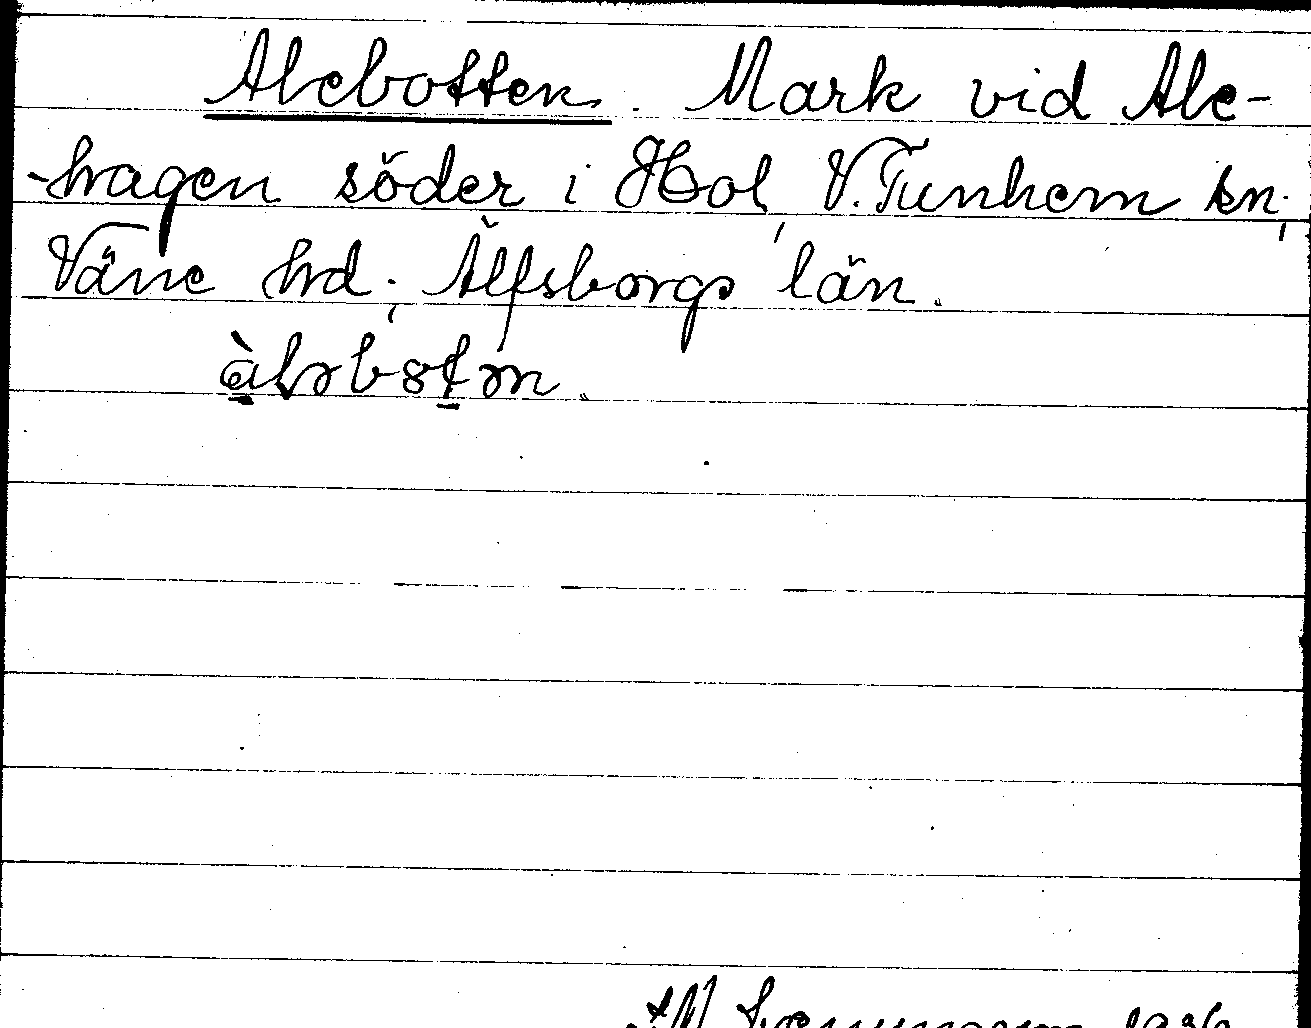 Alebotten. Mark vid Ale-
-hagen söder i Hol, V. Tunhem sn;
Väne hd; Älfsborgs län.